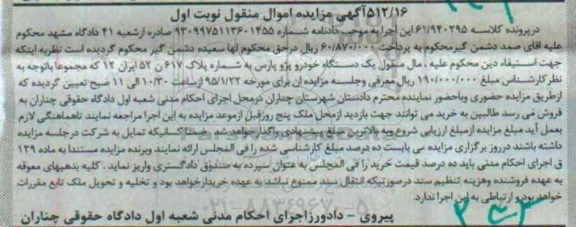 ۵۱۲/۱۶آگهی مزایده اموال منقول نوبت اول
درپرونده کلاسه ۶۱/۹۴۰۲۹۵ این اجرا به موجب دادنامه شماره ۹۳۰۹۹۷۵۱۱۳۶۰۱۴۵۵ صادره ازشعبه ۴۱ دادگاه مشهد محکوم
علیه آقای صمد دشمن گیرمحکوم به پرداخت ۶۰/۸۷۰/۰۰۰ ریال درحق محکوم لها سعیده دشمن گیر محکوم گردیده است نظربه اینکه
جهت استیفاء دین محکوم علیه ، مال منقول یک دستگاه خودرو پژو پارس به شماره پلاک ۶۱۷ن ۵۲ ایران ۱۲ که مجموعا باتوجه به
نظر کارشناس مبلغ ۱۹۰/۰۰۰/۰۰۰ ریال معرفی وجلسه مزایده ان برای مورخه ۹۵/۱/۲۲ ازساعت ۱۰/۳۰ الی ۱۱ صبح تعیین گردیده که
ازطریق مزایده حضوری وباحضور نماینده محترم دادستان شهرستان چناران درمحل اجرای احکام مدنی شعبه اول دادگاه حقوقی چناران به
فروش می رسد طالبین به خرید می توانند جهت بازدید ازمحل ملک پنج روزقبل ازموعد مزایده به این اجرا مراجعه نمایند تاهماهنگی لازم
بعمل آید مبلغ مزایده ازمبلغ ارزیابی شروع وبه بالاترین مبلغ پیشنهادی واگذارخواهد شد ضمنا کسانیکه تمایل به شرکت درجلسه مزایده
داشته باشند درروز برگزاری مزایده می بایست ده درصد مبلغ کارشناسی شده را فی المجلس ارائه نمایند وبرنده مزایده مستندا به ماده ۱۲۹
ق اجرای احکام مدنی باید ده درصد قیمت خرید را فی المجلس به عنوان سپرده به صندوق دادگستری واریز نماید . کلیه بدهیهای معوقه
به عهده فروشنده وهزینه تنظیم سند درصورتیکه انتقال سند ممنوع نباشد به عهده خریدارخواهد بود و تخلیه و تحویل ملک تابع مقررات
خواهد بود وارتباطی به این اجرا ندارد.
پیروی - دادورزاجرای احکام مدنی شعبه اول دادگاه حقوقی چناران
۰۲۱-۸۸۳۴۹۶۷۰-۵